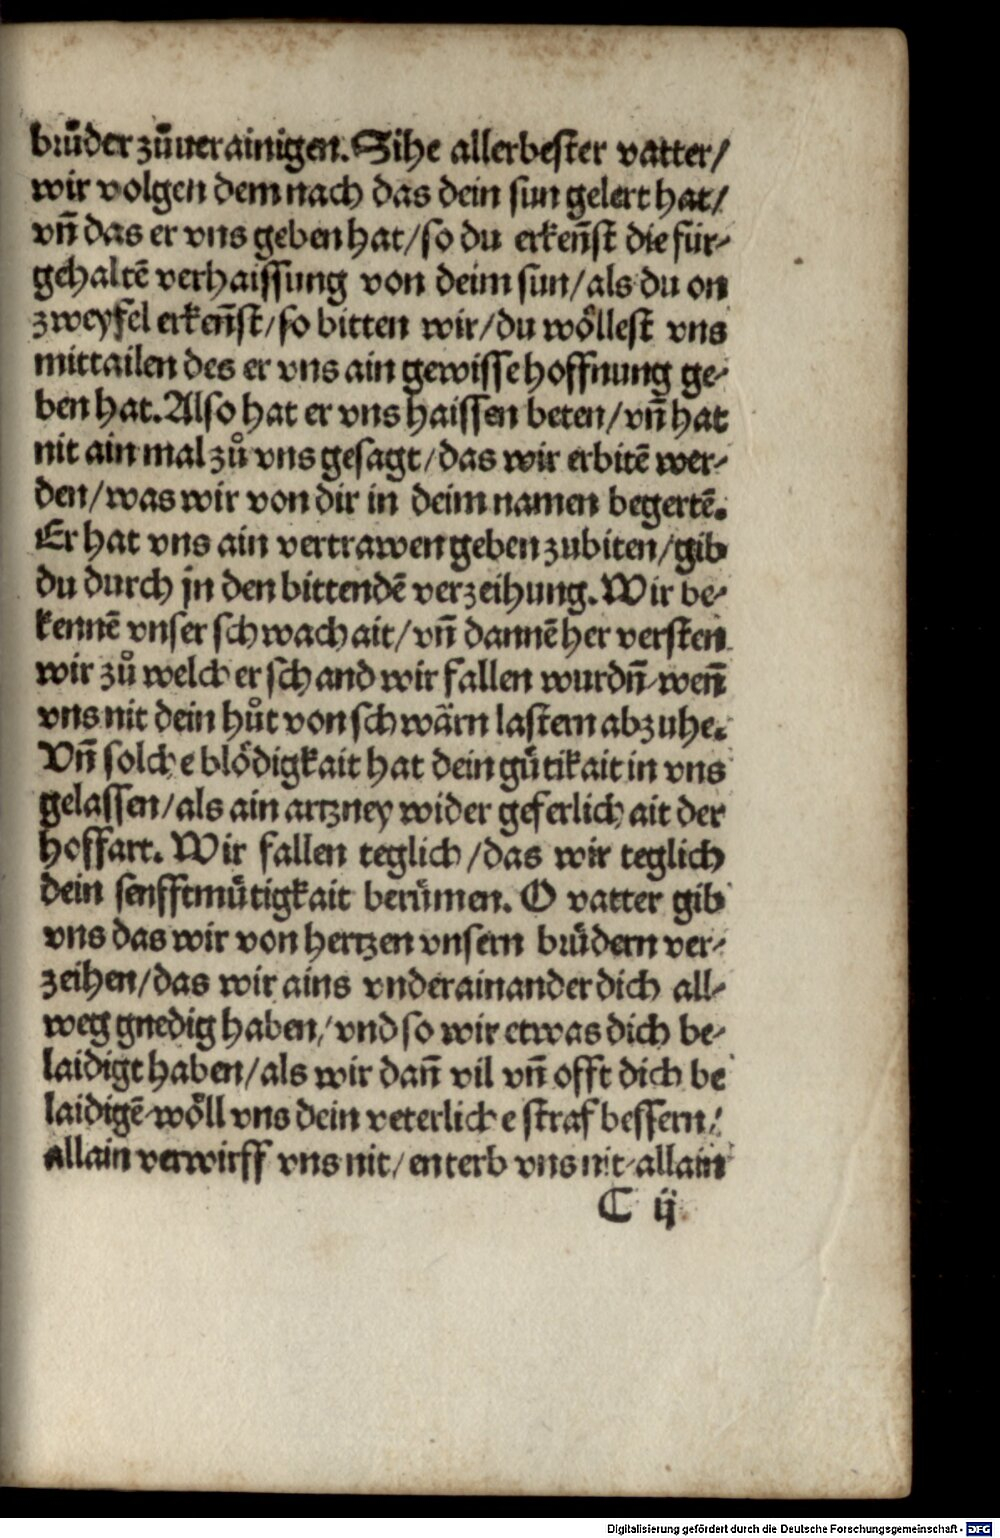 bruͤder zuͦuerainigen. Sihe allerbester vatter/
wir volgen dem nach das dein sun gelert hat/
vn̄ das er vns geben hat/ so du erken̄st die für⸗
gehaltē verhaissung von deim sun/ als du on
zweyfel erken̄st/ so bitten wir/ du woͤllest vns
mittailen des er vns ain gewisse hoffnung ge⸗
ben hat. Also hat er vns haissen beten/ vn̄ hat
nit ain mal zuͦ vns gesagt/ das wir erbitē wer⸗
den/ was wir von dir in deim namen begertē.
Er hat vns ain vertrawen geben zubiten/ gib
du durch jn den bittendē verzeihung. Wir be⸗
kennē vnser schwachait/ vn̄ dannē her versten
wir zuͦ welcher schand wir fallen wurdn̄/ wen̄
vns nit dein huͦt von schwaͤrn lastern abzuhe.
Vn̄ solche bloͤdigkait hat dein guͤtikait in vns
gelassen/ als ain artzney wider geferlichait der
hoffart. Wir fallen teglich/ das wir teglich
dein senfftmuͤtigkait beruͤmen. O vatter gib
vns das wir von hertzen vnsern bruͤdern ver⸗
zeihen/ das wir ains vnderainander dich all⸗
weg gnedig haben/ vnd so wir etwas dich be⸗
laidigt haben/ als wir dan̄ vil vn̄ offt dich be
laidigē/ woͤll vns dein veterliche straf bessern/
allain verwirff vns nit/ enterb vns nit/ allain
C ij
Digitalisierung gefördert durch die Deutsche Forschungsgemeinschaft - DFG